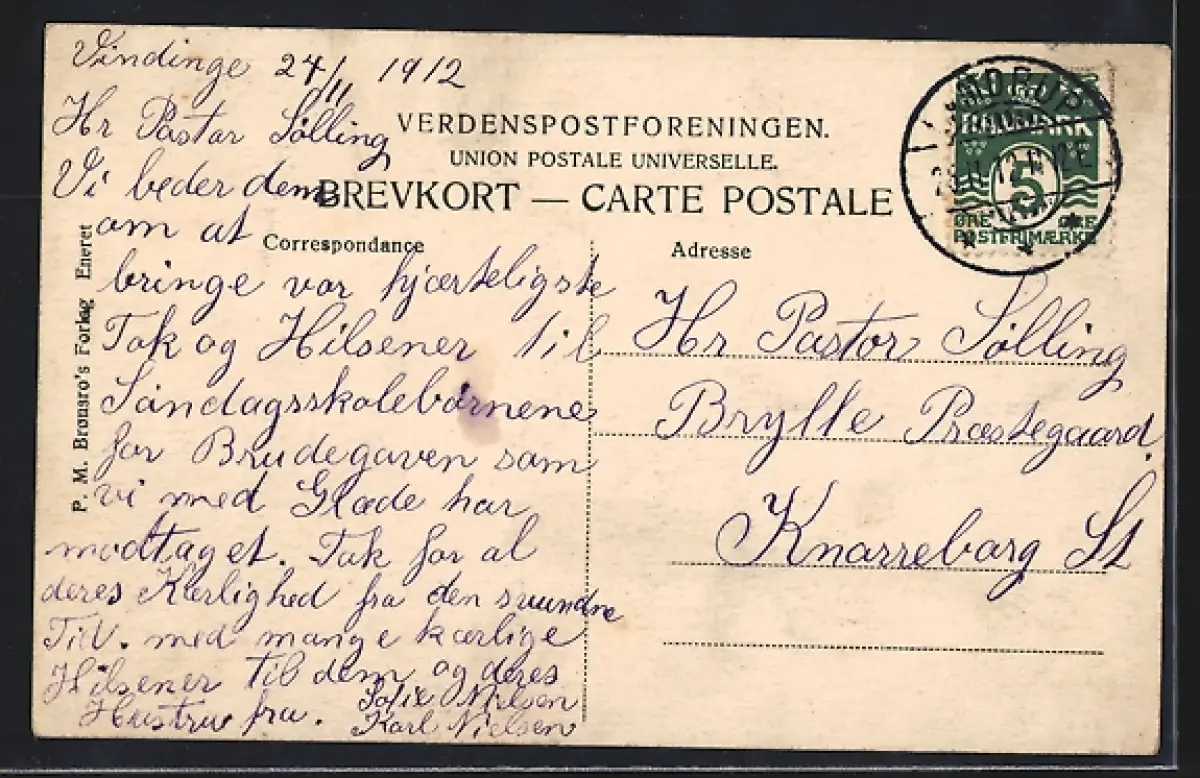 Vindinge 24/11 1912
Hr Pastor Sølling
Vi beder dem
om at
bringe vor hjærteligste
Tak og Hilsener til
Søndagsskolebørnene
for Brudegaven som
vi med Glæde har
modtaget. Tak for al
deres Kærlighed fra den svundne
Tid. med mange kærlige
Hilsener til dem og deres
Hustru fra. Sofie Nielsen
Karl Nielsen
P. M. Brønsro's Forlag Eneret
VERDENSPOSTFORENINGEN.
UNION POSTALE UNIVERSELLE.
BREVKORT — CARTE POSTALE
Correspondance
Adresse
Hr Pastor Sølling
Brylle Præstegaard.
Knarreborg St
DANMARK
5
ØRE ØRE
POSTFRIMÆRKE